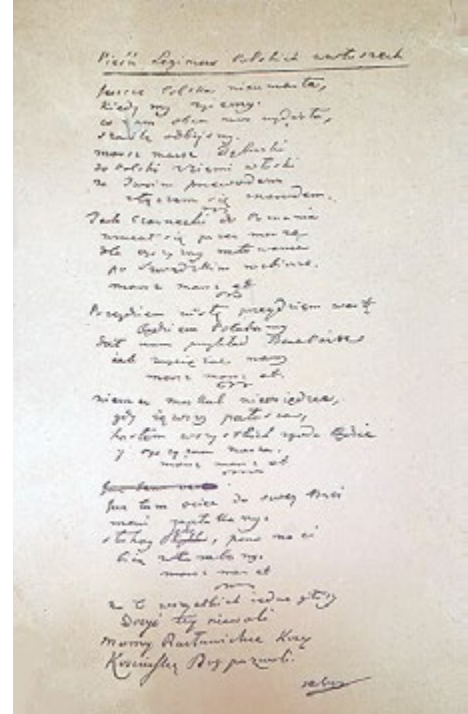 Pieśń Legionów Polskich we Włoszech
Jeszcze Polska nie umarła,
kiedy my żyjemy.
co nam obca moc wydarła,
szablą odbijemy.
marsz marsz Dąbrowski
do Polski z ziemi włoski
za Twoim przewodem
złączem się z narodem.
Jak Czarnecki do Poznania
wracał się przez morze
dla ojczyzny ratowania
po szwedzkim rozbiorze.
marsz marsz et
Przejdziem Wisłę przejdziem Wartę
będziem Polakamy
dał nam przykład Bonaparte
jak zwyciężać mamy
marsz marsz et.
niemiec moskal nie osiędzie,
gdy jąwszy pałasza,
hasłem wszystkich zgoda będzie
y ojczyzna nasza.
marsz marsz et
Już tam ociec do swey Basi
mówi zapłakany:
słuchay, pono nasi
biją w tarabany.
marsz marsz et
na to wszystkich jedne głosy
Dosyć tey niewoli
mamy Racławickie Kosy
Kościuszkę Bóg pozwoli.